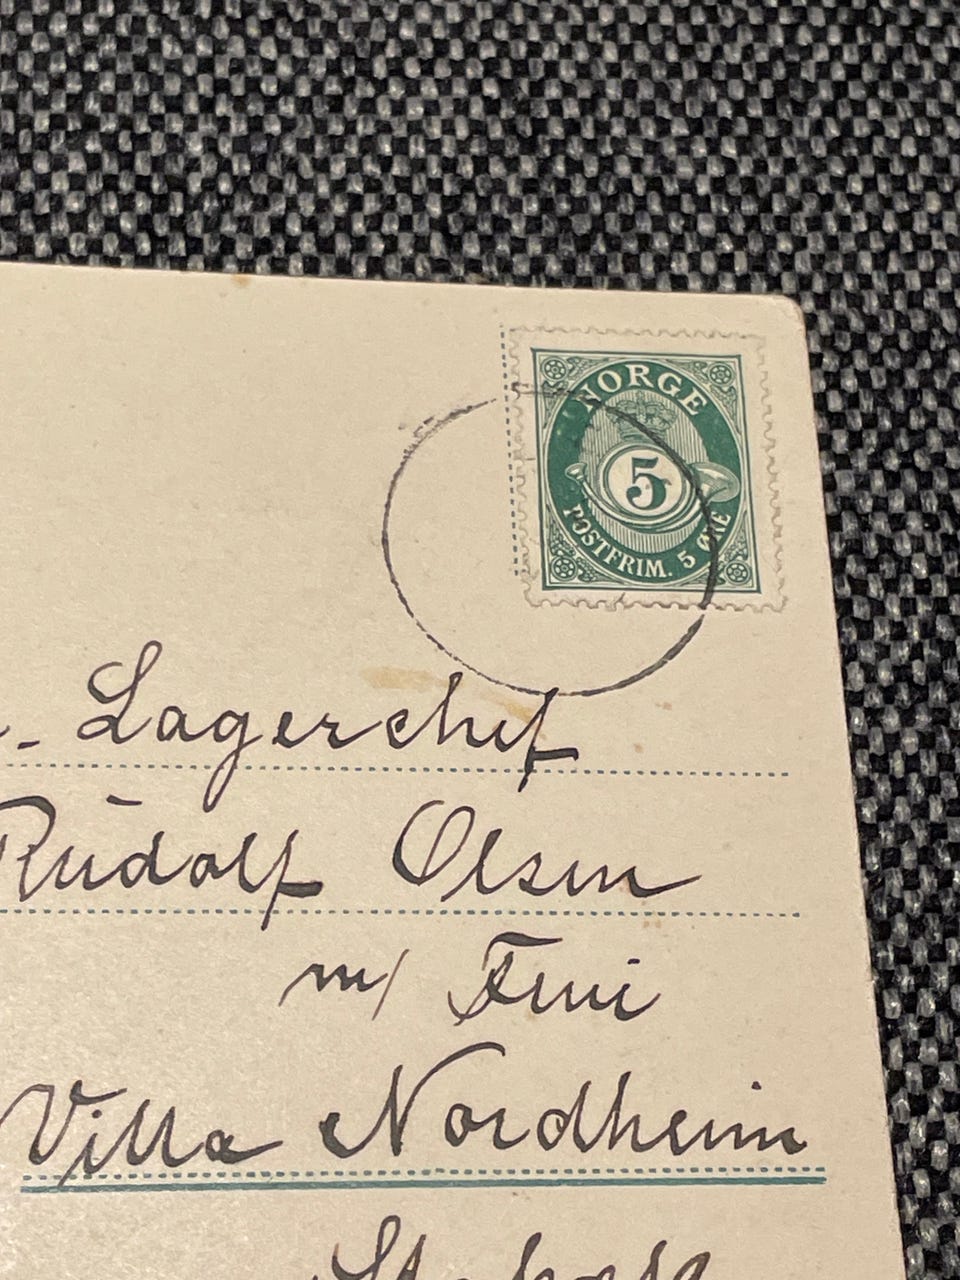 NORGE
5
POSTFRIM. 5 ØRE
Lagerchef
Rudolf Olsen
m/ Frui
Villa Nordheim